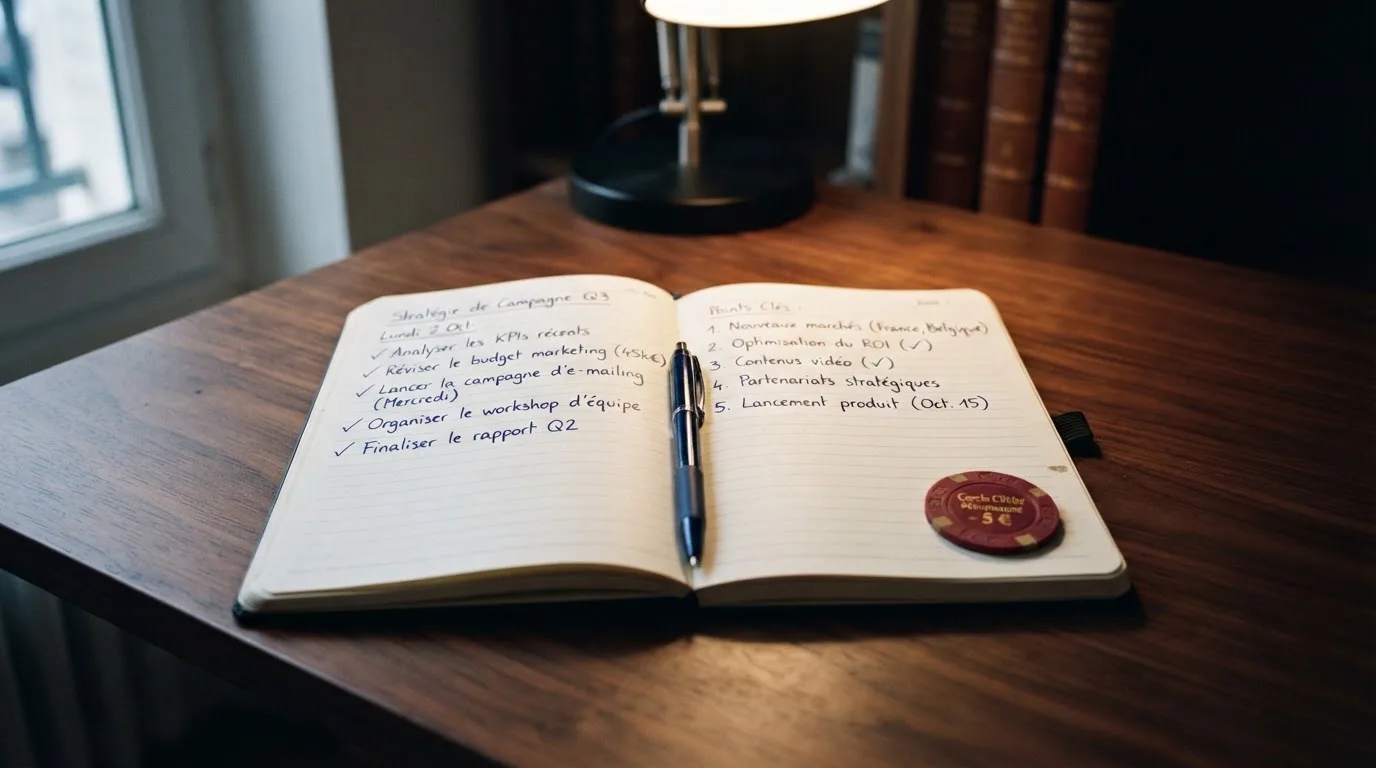 Stratégie de Campagne Q3
Lundi 2 Oct.
✓ Analyser les KPIs récents
✓ Réviser le budget marketing (45k€)
✓ Lancer la campagne d'e-mailing
(Mercredi)
✓ Organiser le workshop d'équipe
✓ Finaliser le rapport Q2
Points Clés :
1. Nouveaux marchés (France, Belgique)
2. Optimisation du ROI (✓)
3. Contenus vidéo (✓)
4. Partenariats stratégiques
5. Lancement produit (Oct. 15)
- 5 €